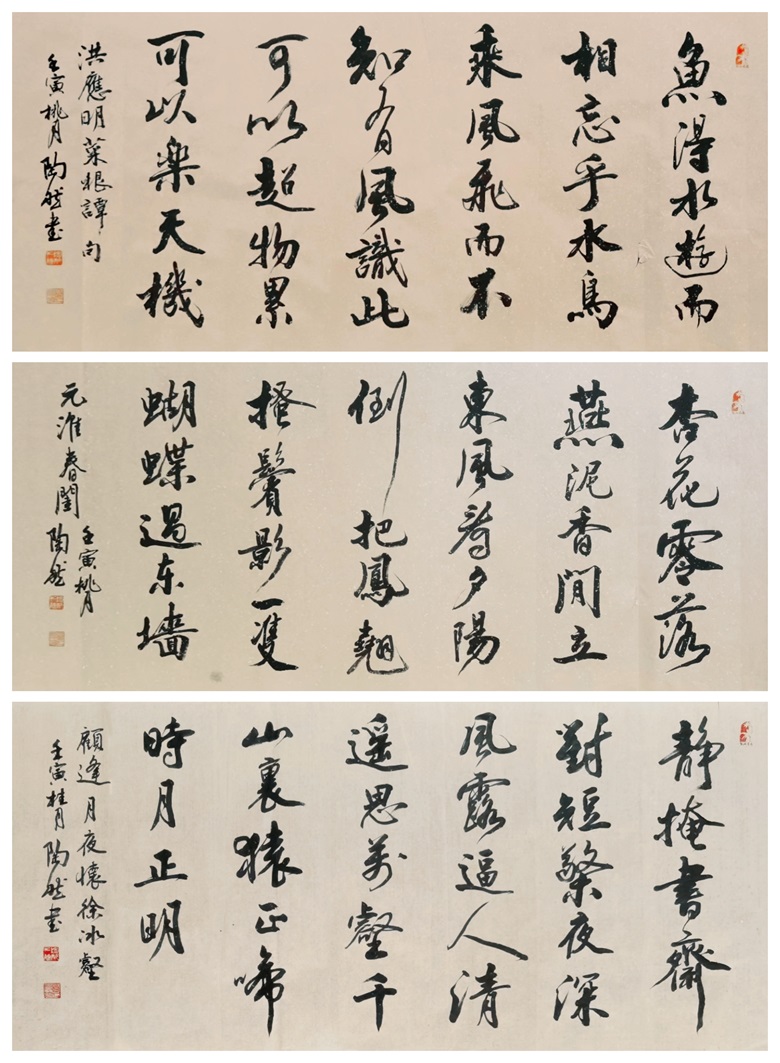 魚得水遊而
相忘乎水鳥
乘風飛而不
知有風識此
可以超物累
可以樂天機
洪應明菜根譚句
壬寅桃月陶然書
杏花零落
燕泥香閒立
東風看夕陽
倒把鳳翹
搔鬢影一隻
蝴蝶過东墻
元淮春閨
壬寅桃月
陶然
静掩書齋
對短檠夜深
風露逼人清
遥思萬壑千
山裏猿正啼
時月正明
顧逢月夜懷徐冰壑
壬寅桂月陶然書